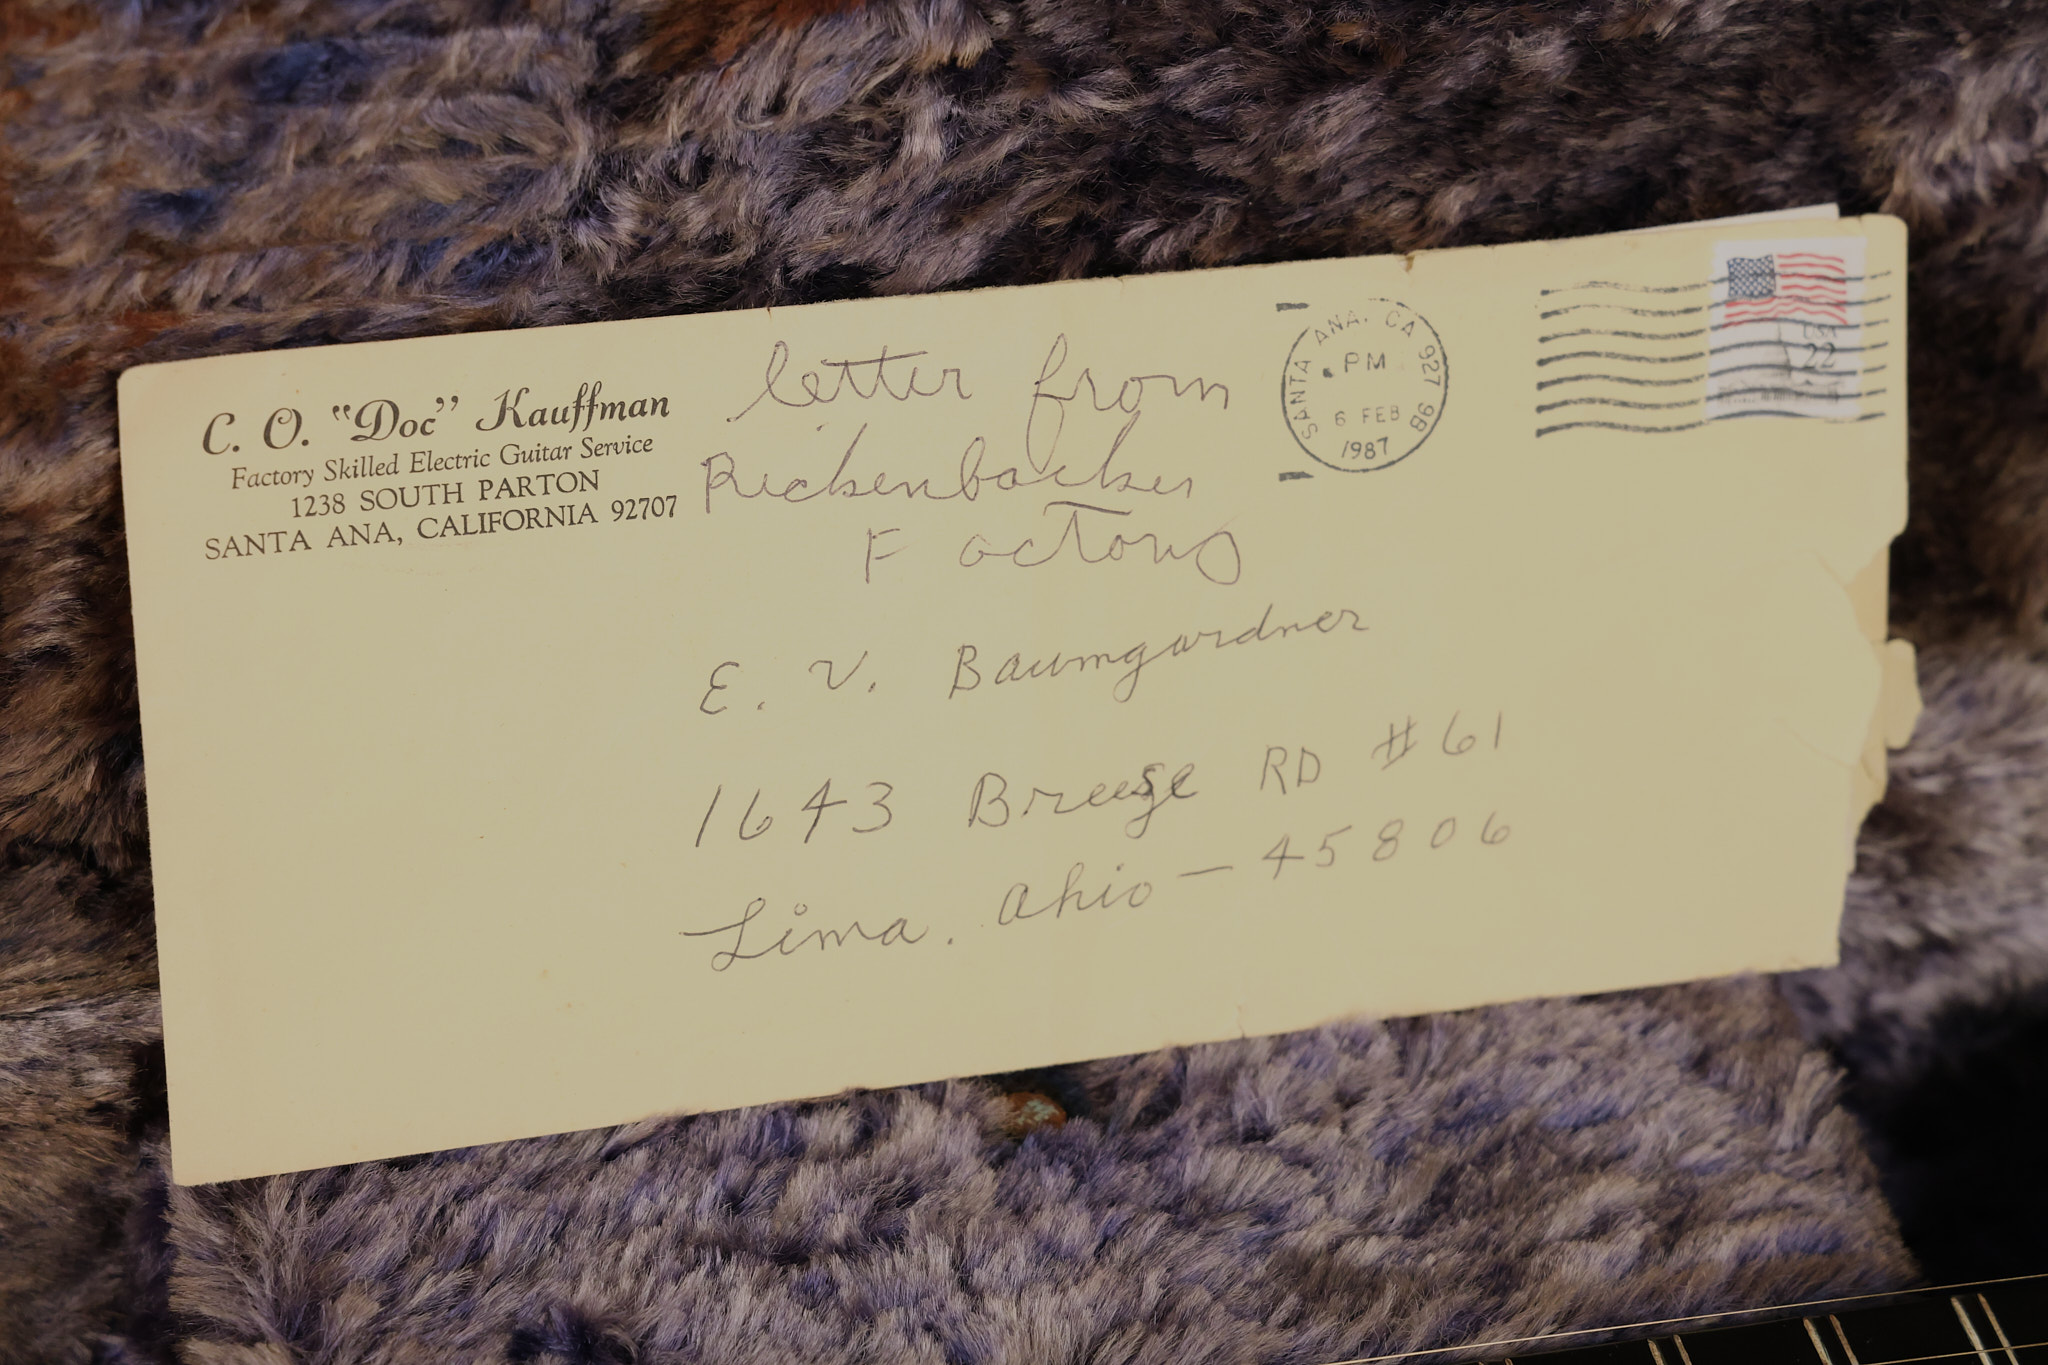 C. O. "Doc" Kauffman
Factory Skilled Electric Guitar Service
1238 SOUTH PARTON
SANTA ANA, CALIFORNIA 92707
letter from
Rickenbacker
Factory
SANTA ANA. CA 927 98
PM
6 FEB
1987
USA
22
E. V. Baumgardner
1643 Breese RD #61
Lima. Ohio - 45806